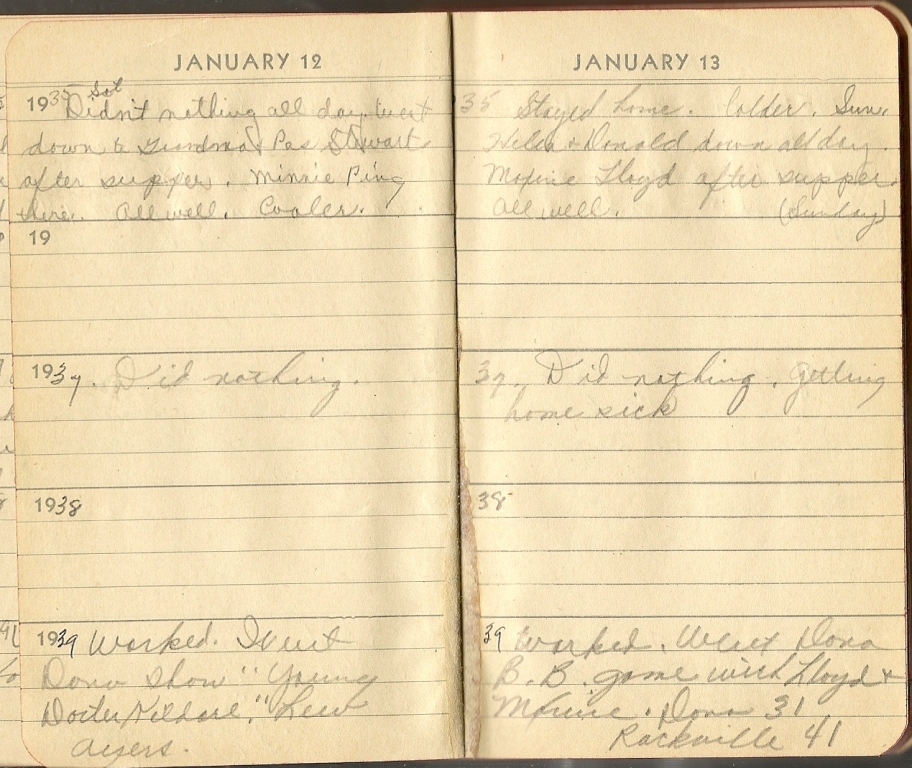 JANUARY 12
1935 Sat
Didn't nothing all day, went
down to Grandma & Pas Stewart
after supper. Minnie Ping
there. All well. Cooler.
19
1937. Did nothing.
1938
1939 Worked. Went
Dana Show "Young
Doctor Kildare." Lew
Ayers.
JANUARY 13
35 Stayed home. Colder. Sun.
Helen & Donald down all day.
Maxine Lloyd after supper.
All well. (Sunday)
37. Did nothing. Getting
home sick
38
39 Worked. Went Dana
B. B. game with Lloyd &
Maxine. Dana 31
Rockville 41